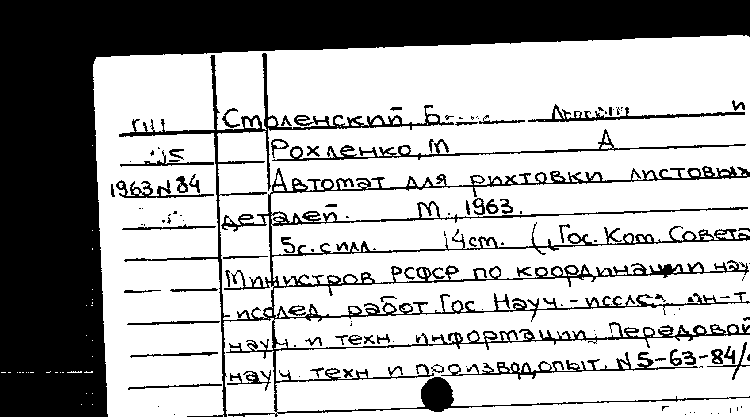 ГПИ Столенский, Б и
Рохленко, М А
1963 N 84 Автомат для рихтовки листовых
деталей. М., 1963.
5с. с илл. 14 cm. (Гос. Ком. Совета
Министров РСФСР по координации науч
-исслед. работ. Гос Науч.-исслед. ин-т.
науч. и техн. информации. Передовой
науч. техн и производ.опыт. N 5-63-84/